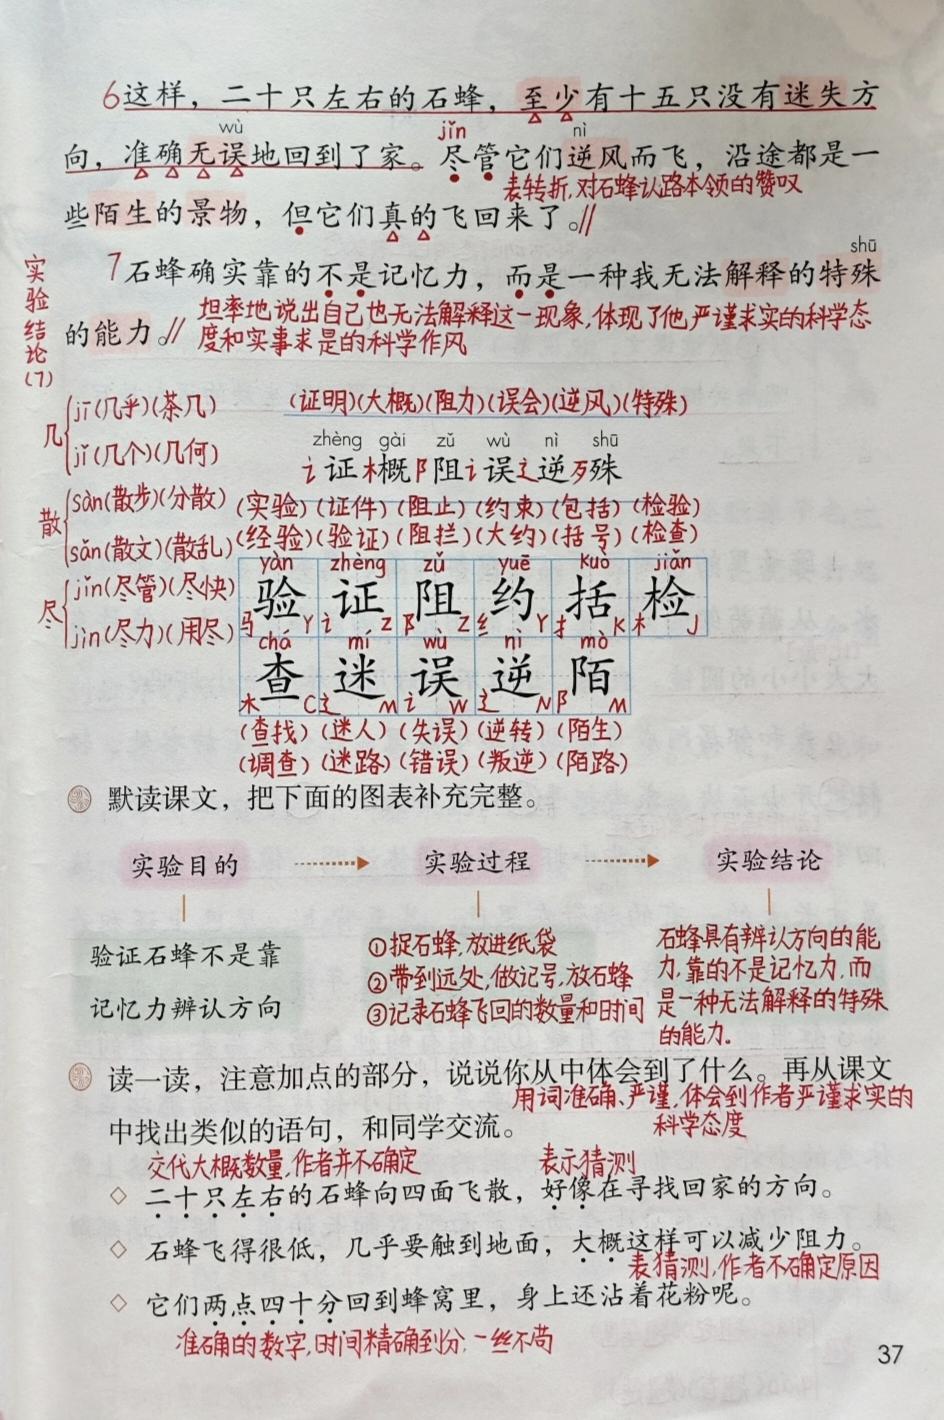 6这样，二十只左右的石蜂，至少有十五只没有迷失方
wù jǐn nì
向，准确无误地回到了家。尽管它们逆风而飞，沿途都是一
表转折,对石蜂认路本领的赞叹
些陌生的景物，但它们真的飞回来了。//
shū
7石蜂确实靠的不是记忆力，而是一种我无法解释的特殊
实验结论(7)
坦率地说出自己也无法解释这一现象,体现了他严谨求实的科学态
的能力。//
度和实事求是的科学作风
几
jī(几乎)(茶几)
jǐ(几个)(几何)
(证明)(大概)(阻力)(误会)(逆风)(特殊)
zhèng gài zǔ wù nì shū
讠证木概阝阻讠误辶逆歹殊
散
sàn(散步)(分散)
sǎn(散文)(散乱)
(实验)(证件)(阻止)(约束)(包括)(检验)
(经验)(验证)(阻拦)(大约)(括号)(检查)
尽
jǐn(尽管)(尽快)
jìn(尽力)(用尽)
yàn zhèng zǔ yuē kuò jiǎn
验 证 阻 约 括 检
马 Y 讠 Z 阝 Z 纟 Y 扌 K 木 J
chá mí wù nì mò
查 迷 误 逆 陌
木 C 辶 M 讠 W 辶 N 阝 M
(查找)(迷人)(失误)(逆转)(陌生)
(调查)(迷路)(错误)(叛逆)(陌路)
默读课文，把下面的图表补充完整。
实验目的 实验过程 实验结论
验证石蜂不是靠
记忆力辨认方向
①捉石蜂,放进纸袋
②带到远处,做记号,放石蜂
③记录石蜂飞回的数量和时间
石蜂具有辨认方向的能
力,靠的不是记忆力,而
是一种无法解释的特殊
的能力.
读一读，注意加点的部分，说说你从中体会到了什么。再从课文
用词准确、严谨,体会到作者严谨求实的
中找出类似的语句，和同学交流。
科学态度
交代大概数量,作者并不确定 表示猜测
◇ 二十只左右的石蜂向四面飞散，好像在寻找回家的方向。
◇ 石蜂飞得很低，几乎要触到地面，大概这样可以减少阻力。
表猜测,作者不确定原因
◇ 它们两点四十分回到蜂窝里，身上还沾着花粉呢。
准确的数字,时间精确到分,一丝不苟
37